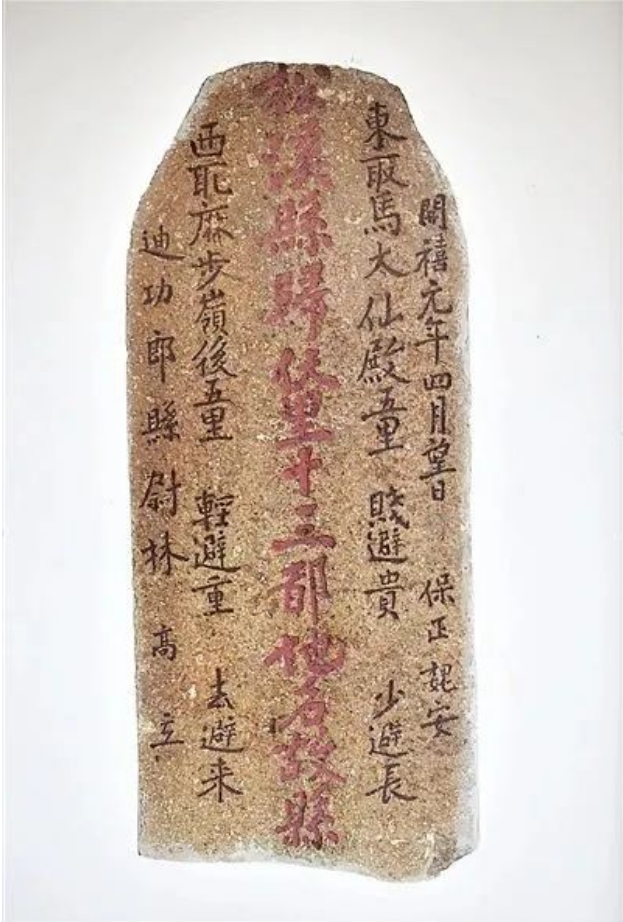 開禧元年四月望日 保正魏安
東取馬大仙殿五里 賤避貴 少避長
松溪縣歸伏里十三都地名故縣
西取麻步嶺後五里 輕避重 去避來
迪功郎縣尉林 高 立